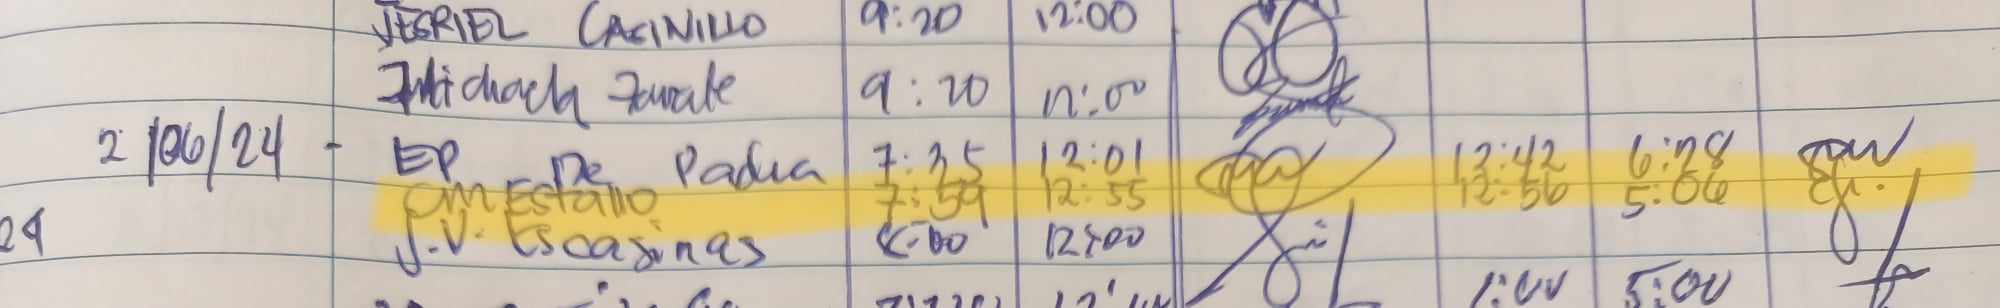 JESRIEL CASINILLO 9:20 12:00
Michaela Zarate 9:20 12:00
2/06/24 - EP De Padua 7:35 12:01 12:42 6:28
CM Estallo 7:59 12:55 12:56 5:06
29 J.V. Escasinas 8:00 12:00
1:00 5:00